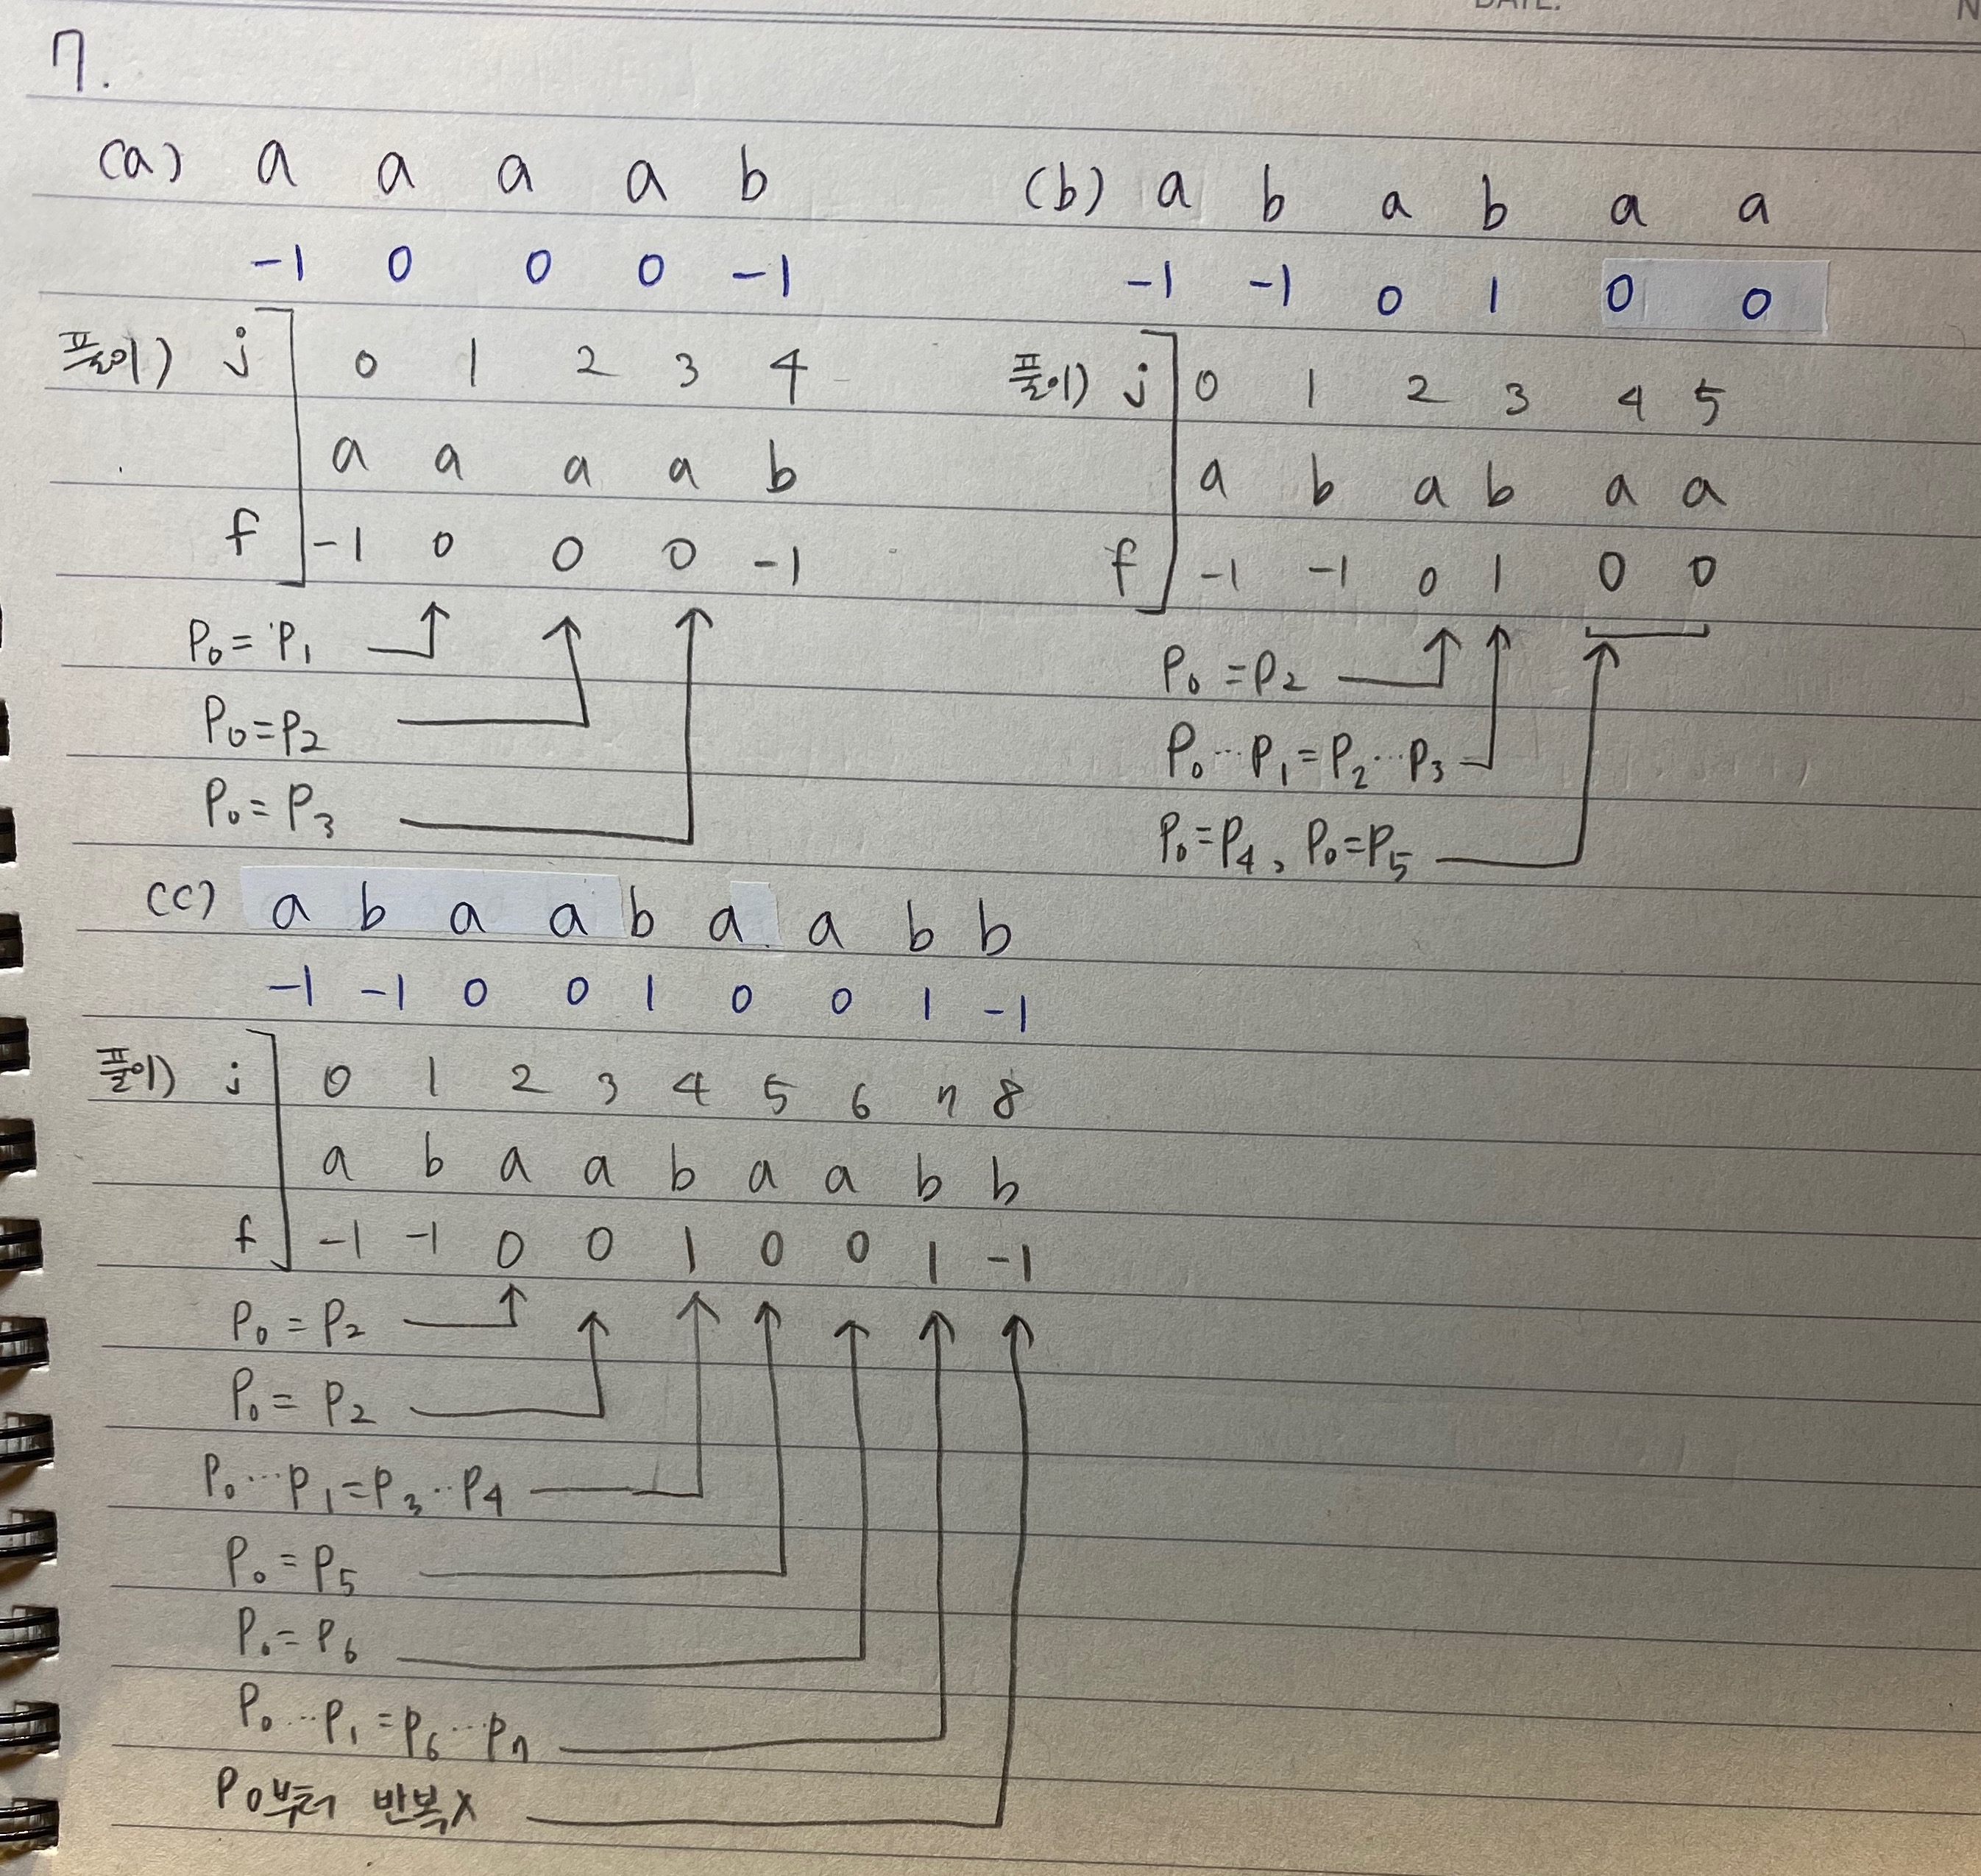 DATE.
7.
(a) a a a a b
-1 0 0 0 -1
풀이) j 0 1 2 3 4
a a a a b
f -1 0 0 0 -1
P₀ = P₁
P₀ = P₂
P₀ = P₃
(b) a b a b a a
-1 -1 0 1 0 0
풀이) j 0 1 2 3 4 5
a b a b a a
f -1 -1 0 1 0 0
P₀ = P₂
P₀ ... P₁ = P₂ ... P₃
P₀ = P₄, P₀ = P₅
(c) a b a a b a a b b
-1 -1 0 0 1 0 0 1 -1
풀이) j 0 1 2 3 4 5 6 7 8
a b a a b a a b b
f -1 -1 0 0 1 0 0 1 -1
P₀ = P₂
P₀ = P₂
P₀ ... P₁ = P₃ .. P₄
P₀ = P₅
P₀ = P₆
P₀ ... P₁ = P₆ ... P₇
P0부터 반복X